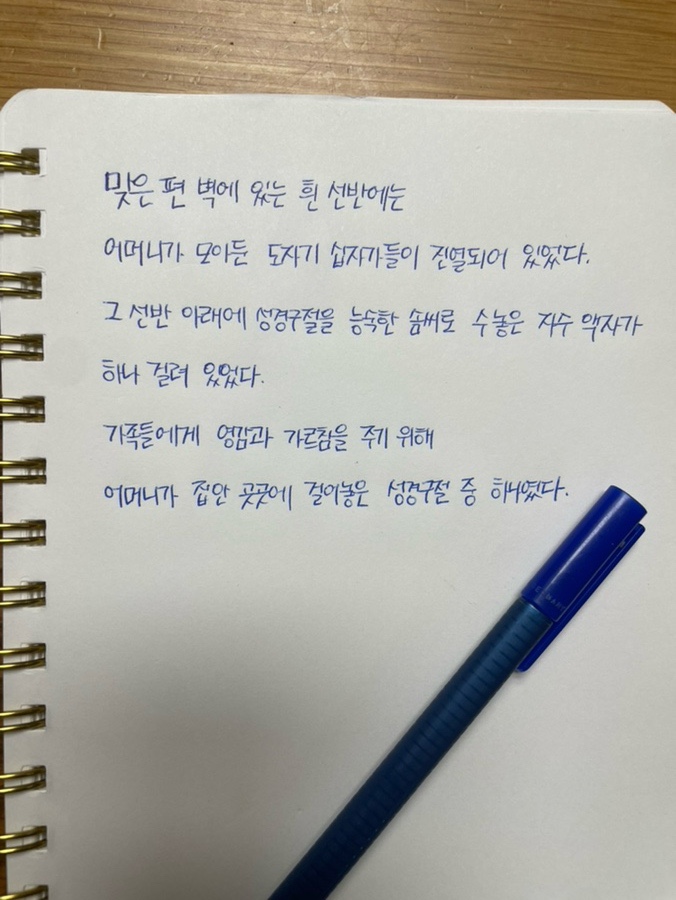 맞은 편 벽에 있는 흰 선반에는
어머니가 모아둔 도자기 십자가들이 진열되어 있었다.
그 선반 아래에 성경구절을 능숙한 솜씨로 수놓은 자수 액자가
하나 걸려 있었다.
가족들에게 영감과 가르침을 주기 위해
어머니가 집안 곳곳에 걸어놓은 성경구절 중 하나였다.